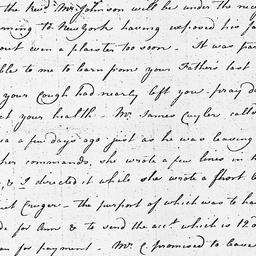 the Revd. Mr. Johnson will be under the nece
rning to New York having exposed his fa
out even a plaister too soon. It was par
ble to me to learn from your Father's last
your Cough had nearly left you. pray do
ct your health. Mr. James Cuyler called
a few days ago just as he was leaving
her commands, she wrote a few lines in th
& I directed it while she wrote a short l
Cruger - the purport of which was to ha
de for Ann & to send the acct. which is 120
for payment. Mr. C. promised to leave